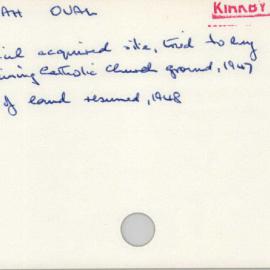 AH OVAL KIRRBY
cil acquired site, tried to buy
ining Catholic Church ground, 1947
of land resumed, 1948